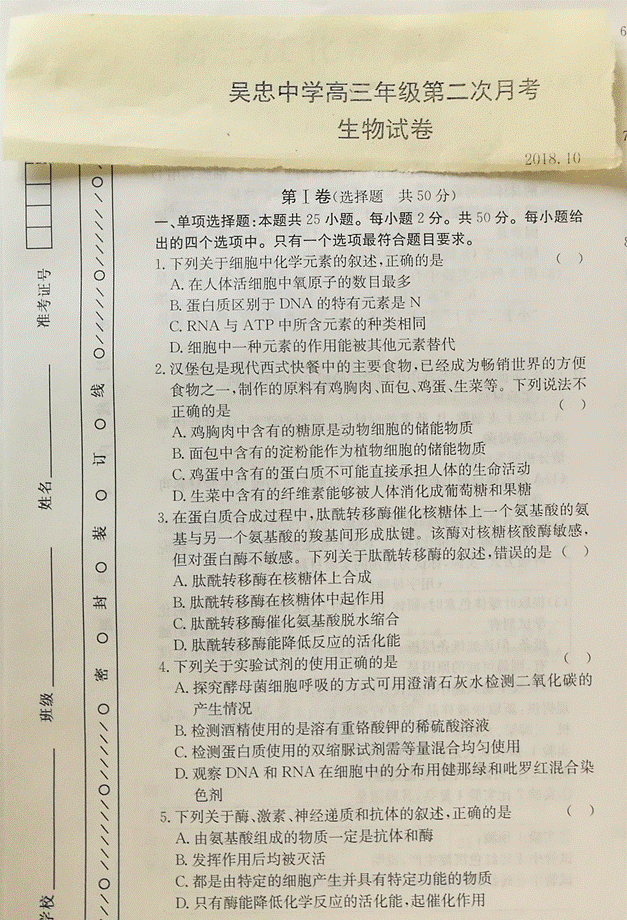 吴忠中学高三年级第二次月考
生物试卷
2018.10
第Ⅰ卷(选择题 共50分)
一、单项选择题:本题共25小题。每小题2分。共50分。每小题给
出的四个选项中。只有一个选项最符合题目要求。
1.下列关于细胞中化学元素的叙述,正确的是 ( )
A.在人体活细胞中氧原子的数目最多
B.蛋白质区别于DNA的特有元素是N
C.RNA与ATP中所含元素的种类相同
D.细胞中一种元素的作用能被其他元素替代
2.汉堡包是现代西式快餐中的主要食物,已经成为畅销世界的方便
食物之一,制作的原料有鸡胸肉、面包、鸡蛋、生菜等。下列说法不
正确的是 ( )
A.鸡胸肉中含有的糖原是动物细胞的储能物质
B.面包中含有的淀粉能作为植物细胞的储能物质
C.鸡蛋中含有的蛋白质不可能直接承担人体的生命活动
D.生菜中含有的纤维素能够被人体消化成葡萄糖和果糖
3.在蛋白质合成过程中,肽酰转移酶催化核糖体上一个氨基酸的氨
基与另一个氨基酸的羧基间形成肽键。该酶对核糖核酸酶敏感,
但对蛋白酶不敏感。下列关于肽酰转移酶的叙述,错误的是 ( )
A.肽酰转移酶在核糖体上合成
B.肽酰转移酶在核糖体中起作用
C.肽酰转移酶催化氨基酸脱水缩合
D.肽酰转移酶能降低反应的活化能
4.下列关于实验试剂的使用正确的是 ( )
A.探究酵母菌细胞呼吸的方式可用澄清石灰水检测二氧化碳的
产生情况
B.检测酒精使用的是溶有重铬酸钾的稀硫酸溶液
C.检测蛋白质使用的双缩脲试剂需等量混合均匀使用
D.观察DNA和RNA在细胞中的分布用健那绿和吡罗红混合染
色剂
5.下列关于酶、激素、神经递质和抗体的叙述,正确的是 ( )
A.由氨基酸组成的物质一定是抗体和酶
B.发挥作用后均被灭活
C.都是由特定的细胞产生并具有特定功能的物质
D.只有酶能降低化学反应的活化能,起催化作用
准考证号
姓名
班级
学校
密 封 装 订 线
6
7
8